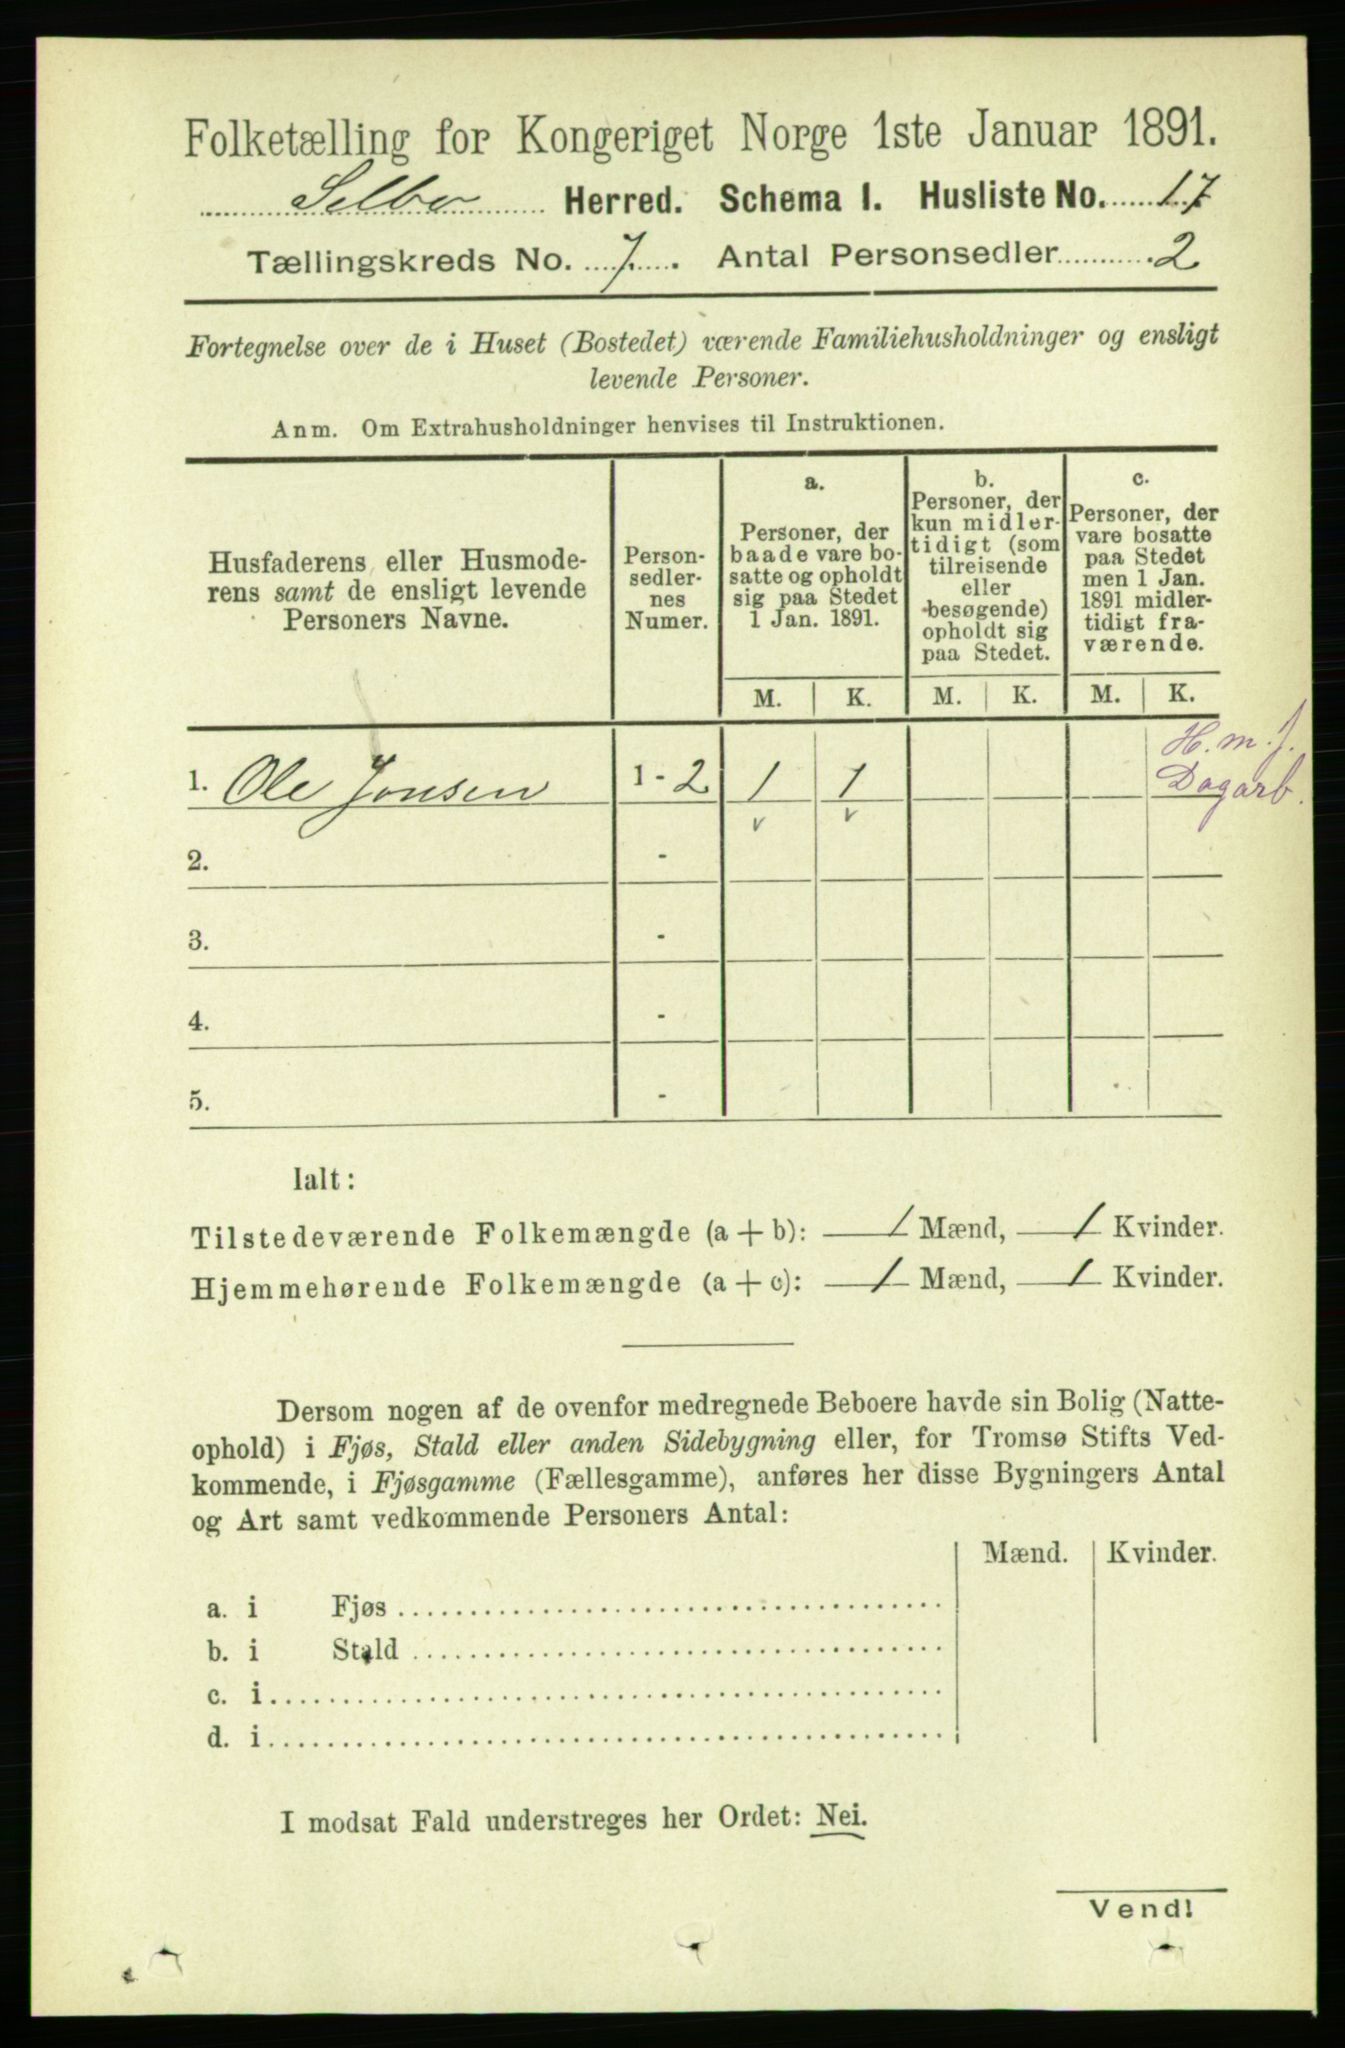 Folketælling for Kongeriget Norge 1ste Januar 1891.
Selbo Herred. Schema I. Husliste No. 17
Tællingskreds No. 7. Antal Personsedler 2
Fortegnelse over de i Huset (Bostedet) værende Familiehusholdninger og ensligt
levende Personer.
Anm. Om Extrahusholdninger henvises til Instruktionen.
Husfaderens eller Husmode-
rens samt de ensligt levende
Personers Navne.
Person-
sedler-
nes
Numer.
a.
Personer, der
baade vare bo-
satte og opholdt
sig paa Stedet
1 Jan. 1891.
b.
Personer, der
kun midler-
tidigt (som
tilreisende
eller
besøgende)
opholdt sig
paa Stedet.
c.
Personer, der
vare bosatte
paa Stedet
men 1 Jan.
1891 midler-
tidigt fra-
værende.
M. K. M. K. M. K.
H. m. J.
1. Ole Jonsen 1 - 2 1 1 Dagarb.
v v
2. -
3. -
4. -
5. -
Ialt:
Tilstedeværende Folkemængde (a + b): 1 Mænd, 1 Kvinder.
Hjemmehørende Folkemængde (a + c): 1 Mænd, 1 Kvinder.
Dersom nogen af de ovenfor medregnede Beboere havde sin Bolig (Natte-
ophold) i Fjøs, Stald eller anden Sidebygning eller, for Tromsø Stifts Ved-
kommende, i Fjøsgamme (Fællesgamme), anføres her disse Bygningers Antal
og Art samt vedkommende Personers Antal:
Mænd. Kvinder.
a. i Fjøs
b. i Stald
c. i
d. i
I modsat Fald understreges her Ordet: Nei.
Vend!